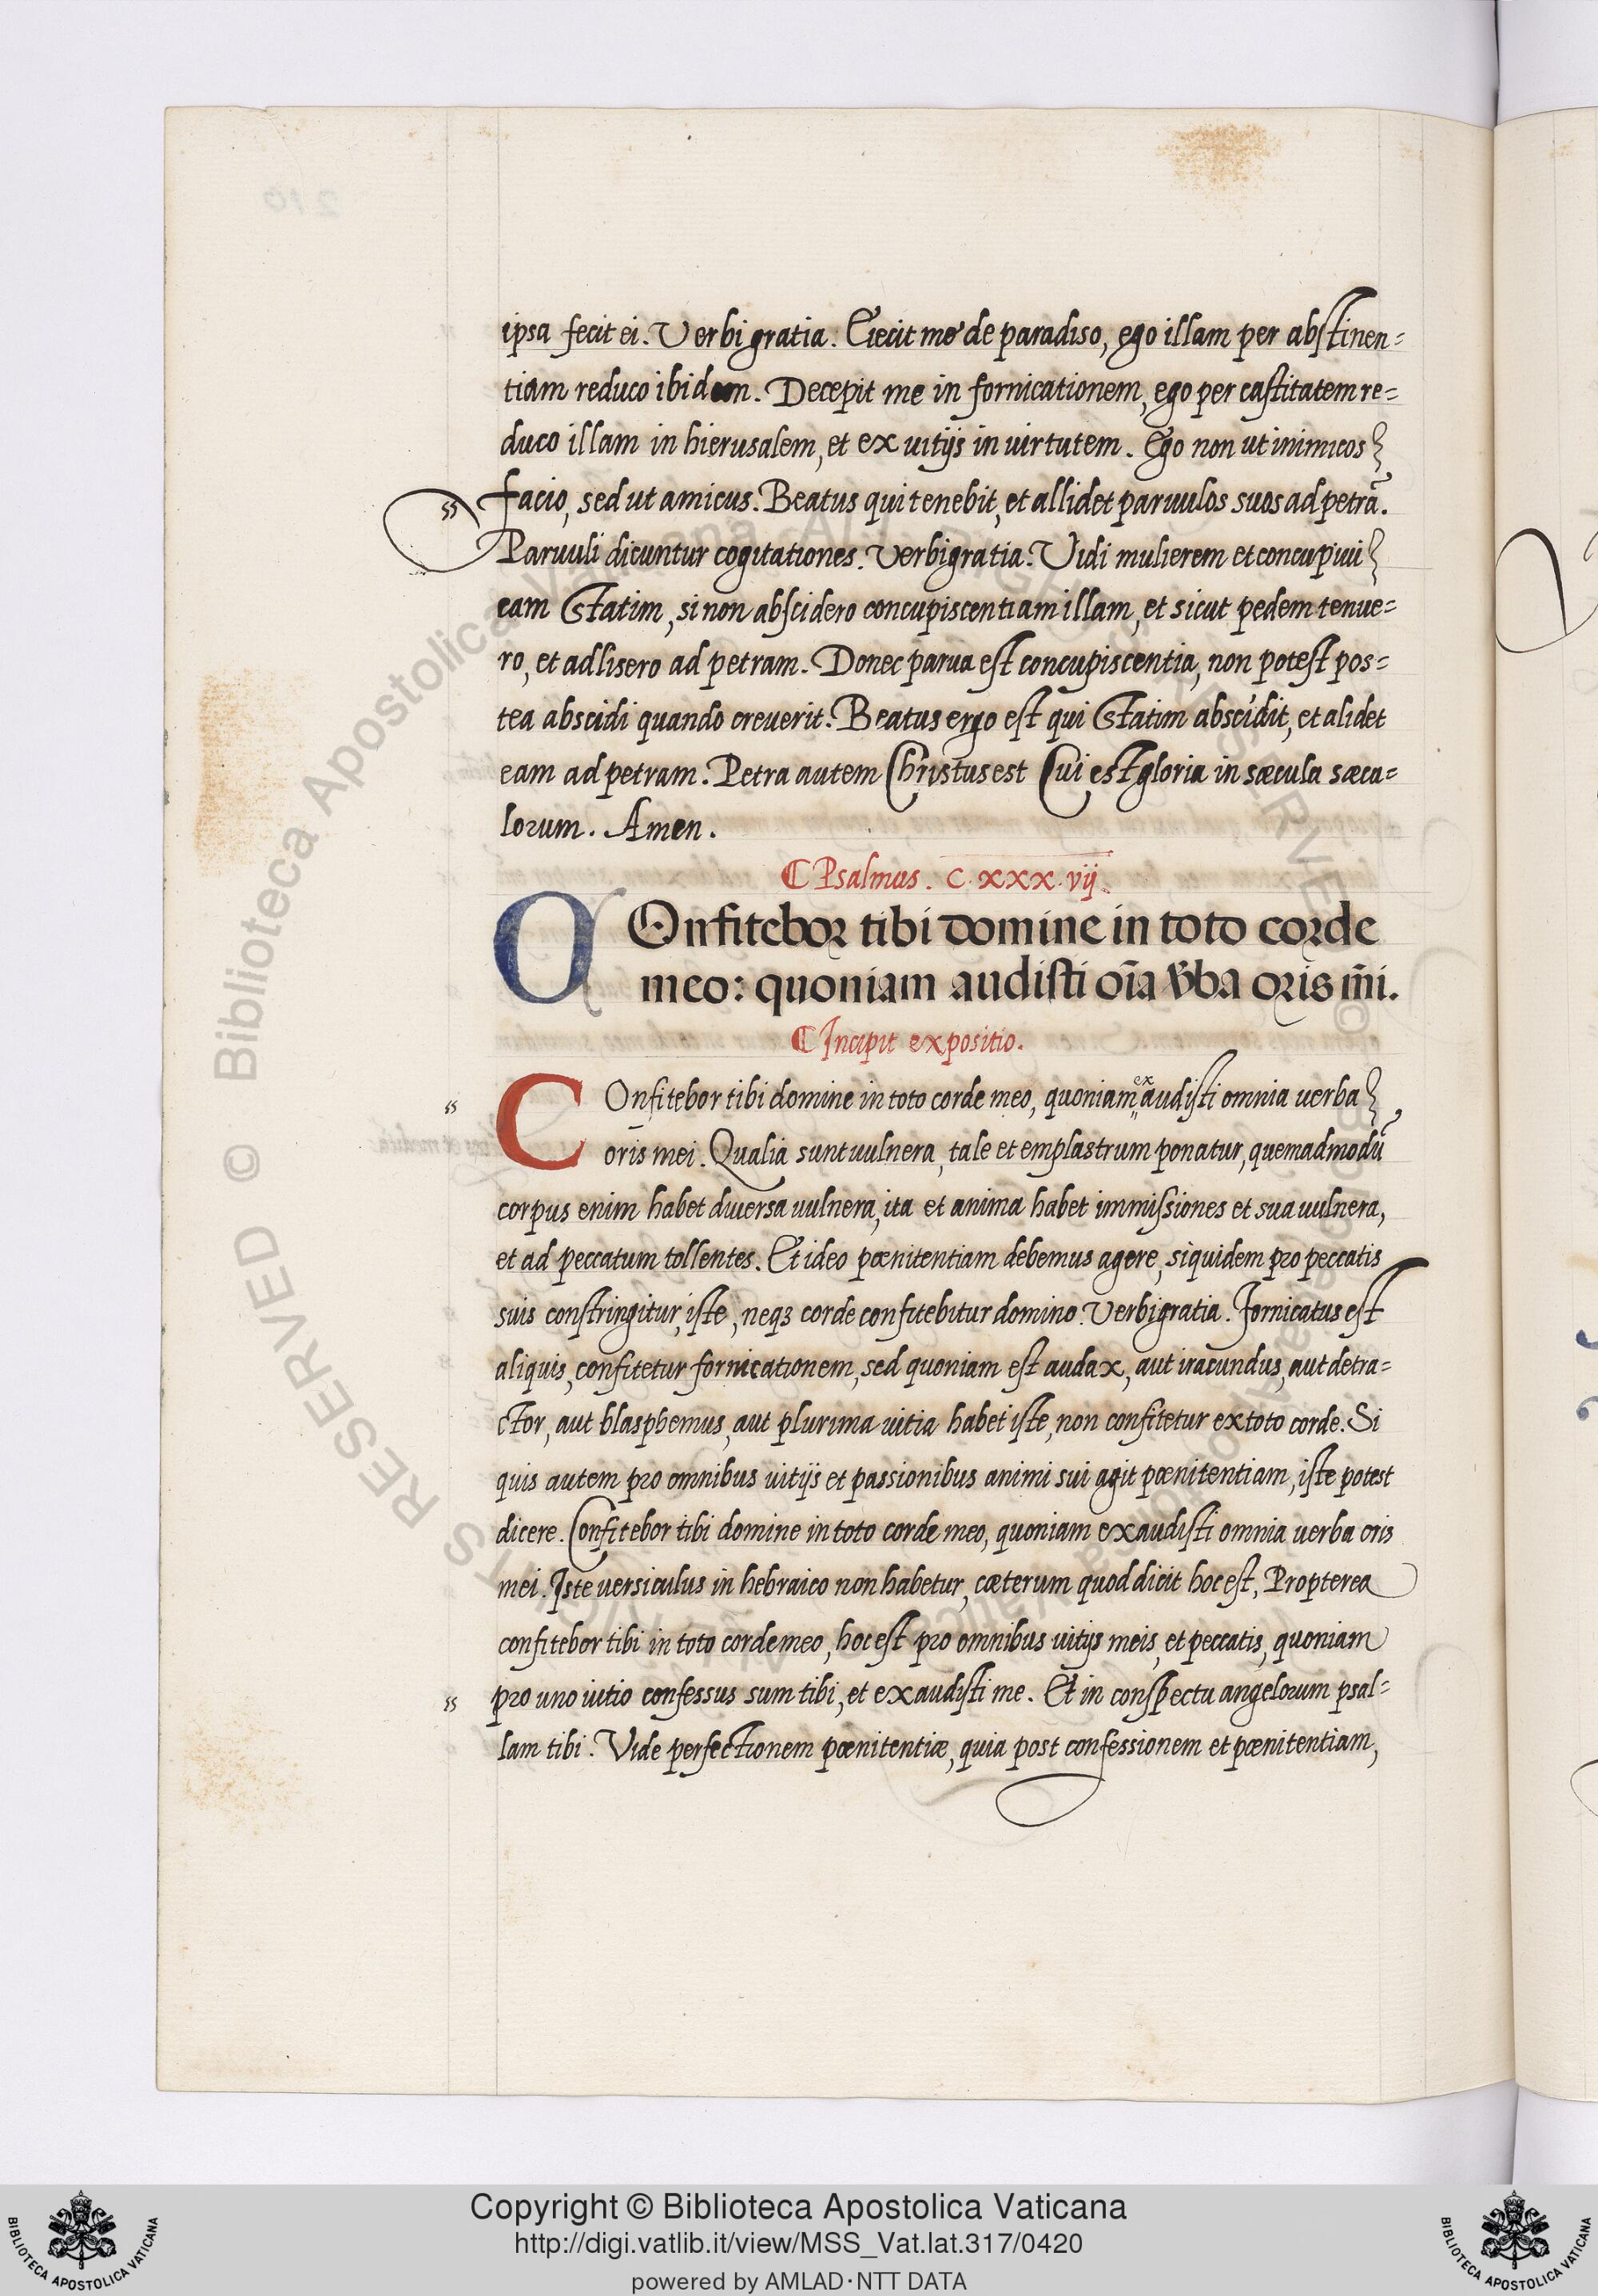 ipsa fecit ei. Verbi gratia. Eiecit me de paradiso, ego illam per abstinen=
tiam reduco ibidem. Decepit me in fornicationem, ego per castitatem re=
duco illam in hierusalem, et ex uitijs in uirtutem. Ego non ut inimicos
facio, sed ut amicus. Beatus qui tenebit, et allidet paruulos suos ad petrā.
Paruuli dicuntur cogitationes. Verbi gratia. Vidi mulierem et concupiui
eam Statim, si non abscidero concupiscentiam illam, et sicut pedem tenue=
ro, et adlisero ad petram. Donec parua est concupiscentia, non potest pos=
tea abscidi quando creuerit. Beatus ergo est qui Statim abscidit, et alidet
eam ad petram. Petra autem Christus est Cui est gloria in sæcula sæcu=
lorum. Amen.
Psalmus. C.XXX.vij.
COnfitebor tibi domine in toto corde
meo: quoniam audisti oīa v̄ba oris m̄i.
Incipit expositio.
COnfitebor tibi domine in toto corde meo, quoniam exaudisti omnia uerba
oris mei. Qualia sunt uulnera, tale et emplastrum ponatur, quemadmodū
corpus enim habet diuersa uulnera, ita et anima habet immissiones et sua uulnera,
et ad peccatum tollentes. Et ideo pœnitentiam debemus agere, siquidem pro peccatis
suis constringitur, iste, neqꝫ corde confitebitur domino. Verbi gratia. Fornicatus est
aliquis, confitetur fornicationem, sed quoniam est audax, aut iracundus, aut detra=
ctor, aut blasphemus, aut plurima uitia habet iste, non confitetur ex toto corde. Si
quis autem pro omnibus uitijs et passionibus animi sui agit pœnitentiam, iste potest
dicere. Confitebor tibi domine in toto corde meo, quoniam exaudisti omnia uerba oris
mei. Iste uersiculus in hebraico non habetur, cæterum quod dicit hoc est, Propterea
confitebor tibi in toto corde meo, hoc est pro omnibus uitijs meis, et peccatis, quoniam
pro uno uitio confessus sum tibi, et exaudisti me. Et in conspectu angelorum psal=
lam tibi. Vide perfectionem pœnitentiæ, quia post confessionem et pœnitentiam,
Copyright © Biblioteca Apostolica Vaticana
http://digi.vatlib.it/view/MSS_Vat.lat.317/0420
powered by AMLAD·NTT DATA